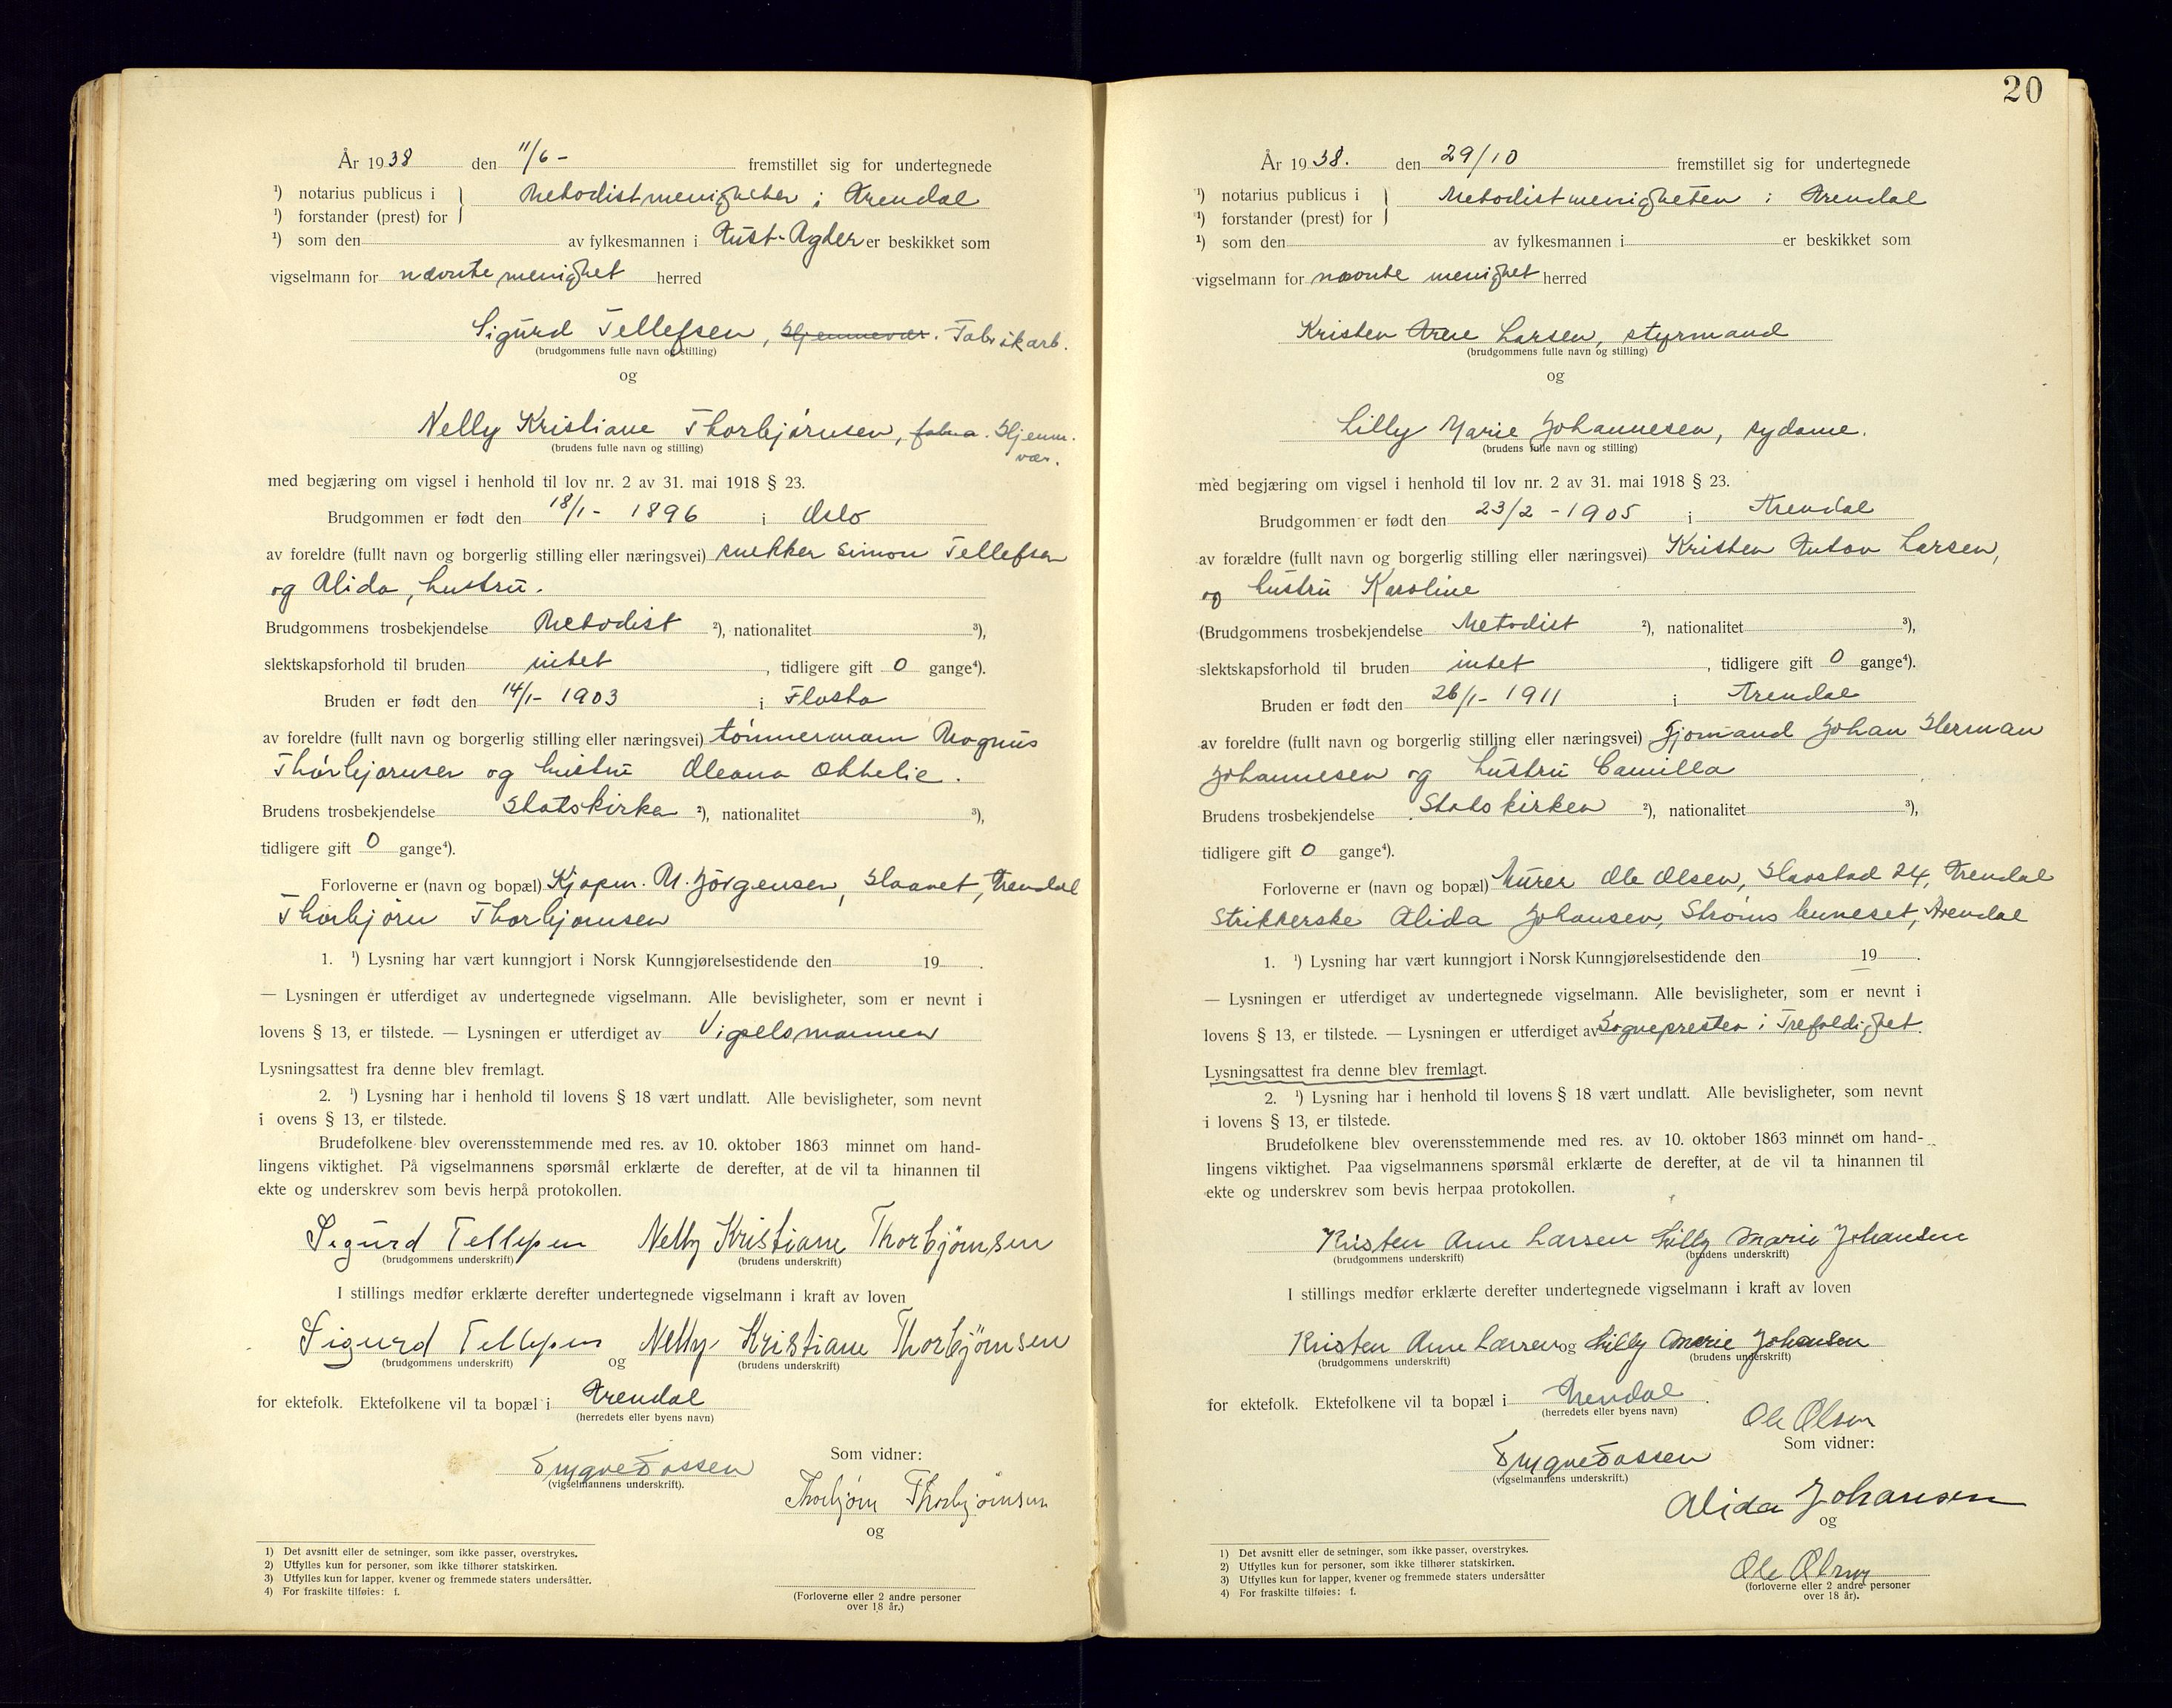 År 1938 den 11/6 - fremstillet sig for undertegnede
¹) notarius publicus i
¹) forstander (prest) for } Metodistmenigheten i Arendal
¹) som den av fylkesmannen i Aust-Agder er beskikket som
vigselmann for nævnte menighet herred
Sigurd Tellefsen, Hjemmevær. Fabrikarb.
(brudgommens fulle navn og stilling)
og
Nelly Kristiane Thorbjørnsen, Hjemm.
vær.
(brudens fulle navn og stilling)
med begjæring om vigsel i henhold til lov nr. 2 av 31. mai 1918 § 23.
Brudgommen er født den 18/1 - 1896 i Oslo
av foreldre (fullt navn og borgerlig stilling eller næringsvei) snekker Simon Tellefsen
og Alida, hustru.
Brudgommens trosbekjendelse Metodist ²), nationalitet ³),
slektskapsforhold til bruden intet , tidligere gift 0 gange⁴).
Bruden er født den 14/1 - 1903 i Flosta
av foreldre (fullt navn og borgerlig stilling eller næringsvei) tømmermann Magnus
Thorbjørnsen og hustru Oleana Othelie.
Brudens trosbekjendelse Statskirke ²), nationalitet ³),
tidligere gift 0 gange⁴).
Forloverne er (navn og bopæl) Kjøpm. M. Jørgensen, Arendal
Thorbjørn Thorbjørnsen
1. ¹) Lysning har vært kunngjort i Norsk Kunngjørelsestidende den 19 .
— Lysningen er utferdiget av undertegnede vigselmann. Alle bevisligheter, som er nevnt i
lovens § 13, er tilstede. — Lysningen er utferdiget av Vigselsmannen
Lysningsattest fra denne blev fremlagt.
2. ¹) Lysning har i henhold til lovens § 18 vært undlatt. Alle bevisligheter, som nevnt
i ovens § 13, er tilstede.
Brudefolkene blev overensstemmende med res. av 10. oktober 1863 minnet om hand-
lingens viktighet. På vigselmannens spørsmål erklærte de derefter, at de vil ta hinannen til
ekte og underskrev som bevis herpå protokollen.
Sigurd Tellefsen Nelly Kristiane Thorbjørnsen
(brudgommens underskrift) (brudens underskrift)
I stillings medfør erklærte derefter undertegnede vigselmann i kraft av loven
Sigurd Tellefsen og Nelly Kristiane Thorbjørnsen
(brudgommens underskrift) (brudens underskrift)
for ektefolk. Ektefolkene vil ta bopæl i Arendal
(herredets eller byens navn)
Som vidner:
Trygve Fossen
(vigselmannens underskrift).
Thorbjørn Thorbjørnsen
og
(Forloverne eller 2 andre personer
over 18 år.)
1) Det avsnitt eller de setninger, som ikke passer, overstrykes.
2) Utfylles kun for personer, som ikke tilhører statskirken.
3) Utfylles kun for lapper, kvener og fremmede staters undersåtter.
4) For fraskilte tilføies: f.
20
År 1938. den 29/10 fremstillet sig for undertegnede
¹) notarius publicus i
¹) forstander (prest) for } Metodistmenigheten i Arendal
¹) som den av fylkesmannen i er beskikket som
vigselmann for nævnte menighet herred
Kristen Arne Larsen, styrmand
(brudgommens fulle navn og stilling)
og
Lilly Marie Johannesen, sydame.
(brudens fulle navn og stilling)
med begjæring om vigsel i henhold til lov nr. 2 av 31. mai 1918 § 23.
Brudgommen er født den 23/2 - 1905 i Arendal
av forældre (fullt navn og borgerlig stilling eller næringsvei) Kristen Anton Larsen,
og hustru Karoline
(Brudgommens trosbekjendelse Metodist ²), nationalitet ³),
slektskapsforhold til bruden intet , tidligere gift 0 gange⁴).
Bruden er født den 26/1 - 1911 i Arendal
av foreldre (fullt navn og borgerlig stilling eller næringsvei) Sjømand Johan Herman
Johannesen og hustru Camilla
Brudens trosbekjendelse Statskirken ²), nationalitet ³),
tidligere gift 0 gange⁴).
Forloverne er (navn og bopæl) Murer Ole Olsen, 24, Arendal
Strikkerske Alida Johansen, Strømsbuneset, Arendal
1. ¹) Lysning har vært kunngjort i Norsk Kunngjørelsestidende den 19 .
— Lysningen er utferdiget av undertegnede vigselmann. Alle bevisligheter, som er nevnt i
lovens § 13, er tilstede. — Lysningen er utferdiget av Sognepresten i Trefoldighet.
Lysningsattest fra denne blev fremlagt.
2. ¹) Lysning har i henhold til lovens § 18 vært undlatt. Alle bevisligheter, som nevnt
i lovens § 13, er tilstede.
Brudefolkene blev overensstemmende med res. av 10. oktober 1863 minnet om hand-
lingens viktighet. Paa vigselmannens spørsmål erklærte de derefter, at de vil ta hinannen til
ekte og underskrev som bevis herpaa protokollen.
Kristen Arne Larsen Lilly Marie Johansen
(brudgommens underskrift) (brudens underskrift)
I stillings medfør erklærte derefter undertegnede vigselmann i kraft av loven
Kristen Arne Larsen og Lilly Marie Johansen
(brudgommens underskrift) (brudens underskrift)
for ektefolk. Ektefolkene vil ta bopæl i Arendal .
(herredets eller byens navn)
Ole Olsen
Som vidner:
Trygve Fossen
(vigselmannens underskrift.)
Alida Johansen
og
Ole Olsen
(forloverne eller 2 andre personer
over 18 år).
1) Det avsnitt eller de setninger, som ikke passer, overstrykes.
2) Utfylles kun for personer, som ikke tilhører statskirken.
3) Utfylles kun for lapper, kvener og fremmede staters undersåtter
4) For fraskilte tilføies: f.